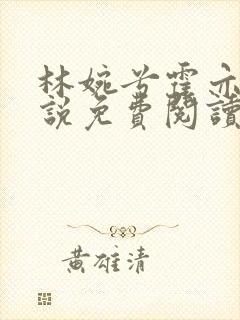 林婉兮霍亦
說免費閱讀
黃雄清